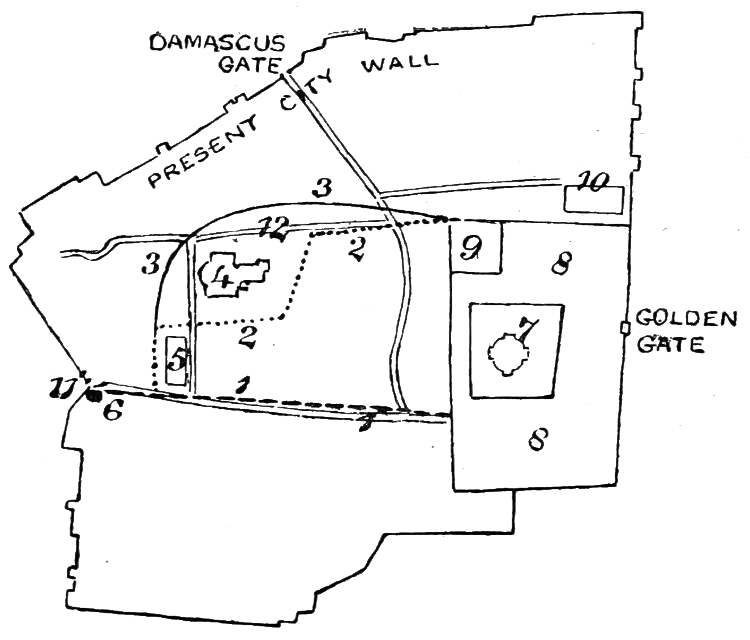 DAMASCUS
GATE
PRESENT CITY WALL
3
10
12
2
3
9
8
4
2
7
GOLDEN
GATE
5
1
11
6
1
8